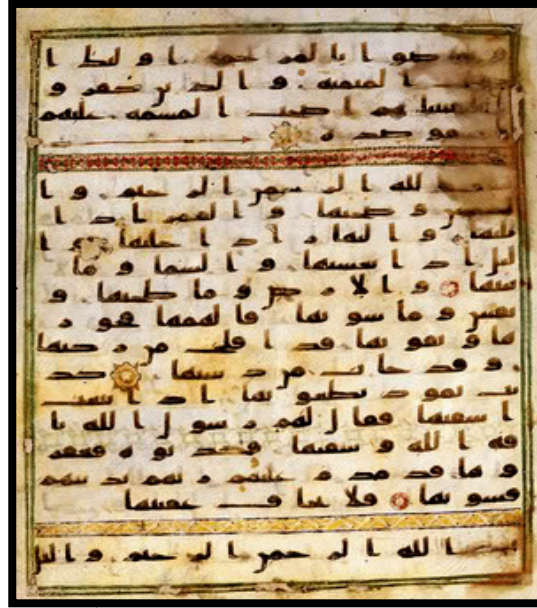 و تواصوا بالمرحمة اولئك ا
صحب الميمنة و الذين كفرو
ا بايتنا هم اصحب المشمة عليهم
نار موصدة
بسم الله الرحمن الرحيم و ا
لشمس و ضحيها و القمر اذا
تليها و النهار اذا جليها و ا
ليل اذا يغشيها و السما و ما
بنيها و الارض و ما طحيها و
نفس و ما سويها فالهمها فجور
ها و تقويها قد افلح من زكيها
و قد خاب من دسيها كذ
بت ثمود بطغويها اذ انبعث
اشقيها فقال لهم رسول الله نا
قة الله و سقيها فكذبوه فعقر
و ها فدمدم عليهم ربهم بذنبهم
فسويها فلا يخاف عقبيها
بسم الله الرحمن الرحيم و اليل